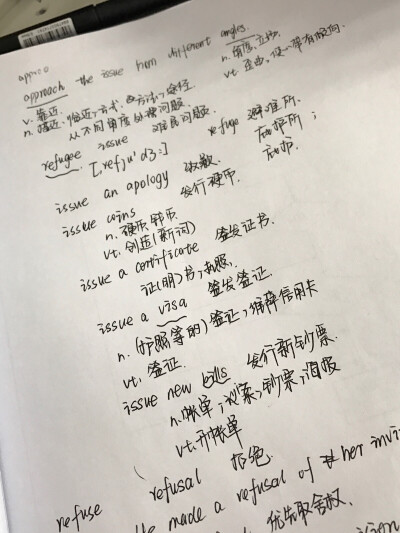 appro
approach the issue from different angles.
v. 靠近 n. 角度,立场
n. 接近,临近;方式,方法,途径 vt. 歪曲,使…带有倾向
从不同角度处理问题
refugee issue 难民问题 refuge 避难所
[,refju'dʒi:] 庇护所;
issue an apology 致歉 庇护
issue coins 发行硬币
n. 硬币,钱币
vt. 创造(新词)
issue a certificate 签发证书
证(明)书;执照
issue a visa 签发签证
n. (护照等的)签证;维萨信用卡
vt. 签证
issue new bills 发行新钞票
n. 帐单;议案;钞票;海报
vt. 开帐单
refuse refusal 拒绝
made a refusal of her invi
优先取舍权